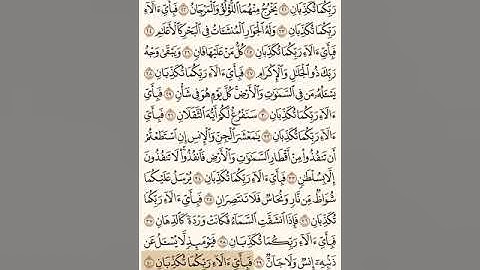 رَبِّكُمَا تُكَذِّبَانِ ٢١ يَخْرُجُ مِنْهُمَا ٱللُّؤْلُؤُ وَٱلْمَرْجَانُ ٢٢ فَبِأَيِّ ءَالَآءِ
رَبِّكُمَا تُكَذِّبَانِ ٢٣ وَلَهُ ٱلْجَوَارِ ٱلْمُنشَـَٔاتُ فِي ٱلْبَحْرِ كَٱلْأَعْلَٰمِ ٢٤
فَبِأَيِّ ءَالَآءِ رَبِّكُمَا تُكَذِّبَانِ ٢٥ كُلُّ مَنْ عَلَيْهَا فَانٍ ٢٦ وَيَبْقَىٰ وَجْهُ
رَبِّكَ ذُو ٱلْجَلَٰلِ وَٱلْإِكْرَامِ ٢٧ فَبِأَيِّ ءَالَآءِ رَبِّكُمَا تُكَذِّبَانِ ٢٨
يَسْـَٔلُهُۥ مَن فِي ٱلسَّمَٰوَٰتِ وَٱلْأَرْضِ كُلَّ يَوْمٍ هُوَ فِي شَأْنٍ ٢٩ فَبِأَيِّ
ءَالَآءِ رَبِّكُمَا تُكَذِّبَانِ ٣٠ سَنَفْرُغُ لَكُمْ أَيُّهَ ٱلثَّقَلَانِ ٣١ فَبِأَيِّ
ءَالَآءِ رَبِّكُمَا تُكَذِّبَانِ ٣٢ يَٰمَعْشَرَ ٱلْجِنِّ وَٱلْإِنسِ إِنِ ٱسْتَطَعْتُمْ
أَن تَنفُذُوا۟ مِنْ أَقْطَارِ ٱلسَّمَٰوَٰتِ وَٱلْأَرْضِ فَٱنفُذُوا۟ لَا تَنفُذُونَ
إِلَّا بِسُلْطَٰنٍ ٣٣ فَبِأَيِّ ءَالَآءِ رَبِّكُمَا تُكَذِّبَانِ ٣٤ يُرْسَلُ عَلَيْكُمَا
شُوَاظٌ مِّن نَّارٍ وَنُحَاسٌ فَلَا تَنتَصِرَانِ ٣٥ فَبِأَيِّ ءَالَآءِ رَبِّكُمَا
تُكَذِّبَانِ ٣٦ فَإِذَا ٱنشَقَّتِ ٱلسَّمَآءُ فَكَانَتْ وَرْدَةً كَٱلدِّهَانِ ٣٧
فَبِأَيِّ ءَالَآءِ رَبِّكُمَا تُكَذِّبَانِ ٣٨ فَيَوْمَئِذٍ لَّا يُسْـَٔلُ عَن
ذَنۢبِهِۦٓ إِنسٌ وَلَا جَآنٌّ ٣٩ فَبِأَيِّ ءَالَآءِ رَبِّكُمَا تُكَذِّبَانِ ٤٠